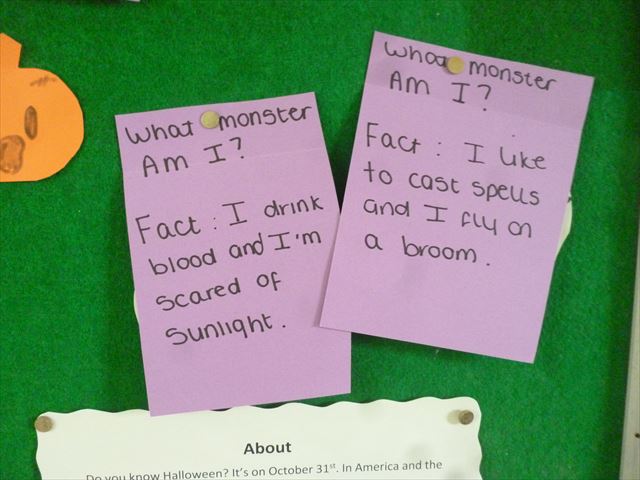 What monster
Am I?
Fact : I drink
blood and I'm
scared of
sunlight.
What monster
Am I?
Fact : I like
to cast spells
and I fly on
a broom.
About
Do you know Halloween? It's on October 31st. In America and the